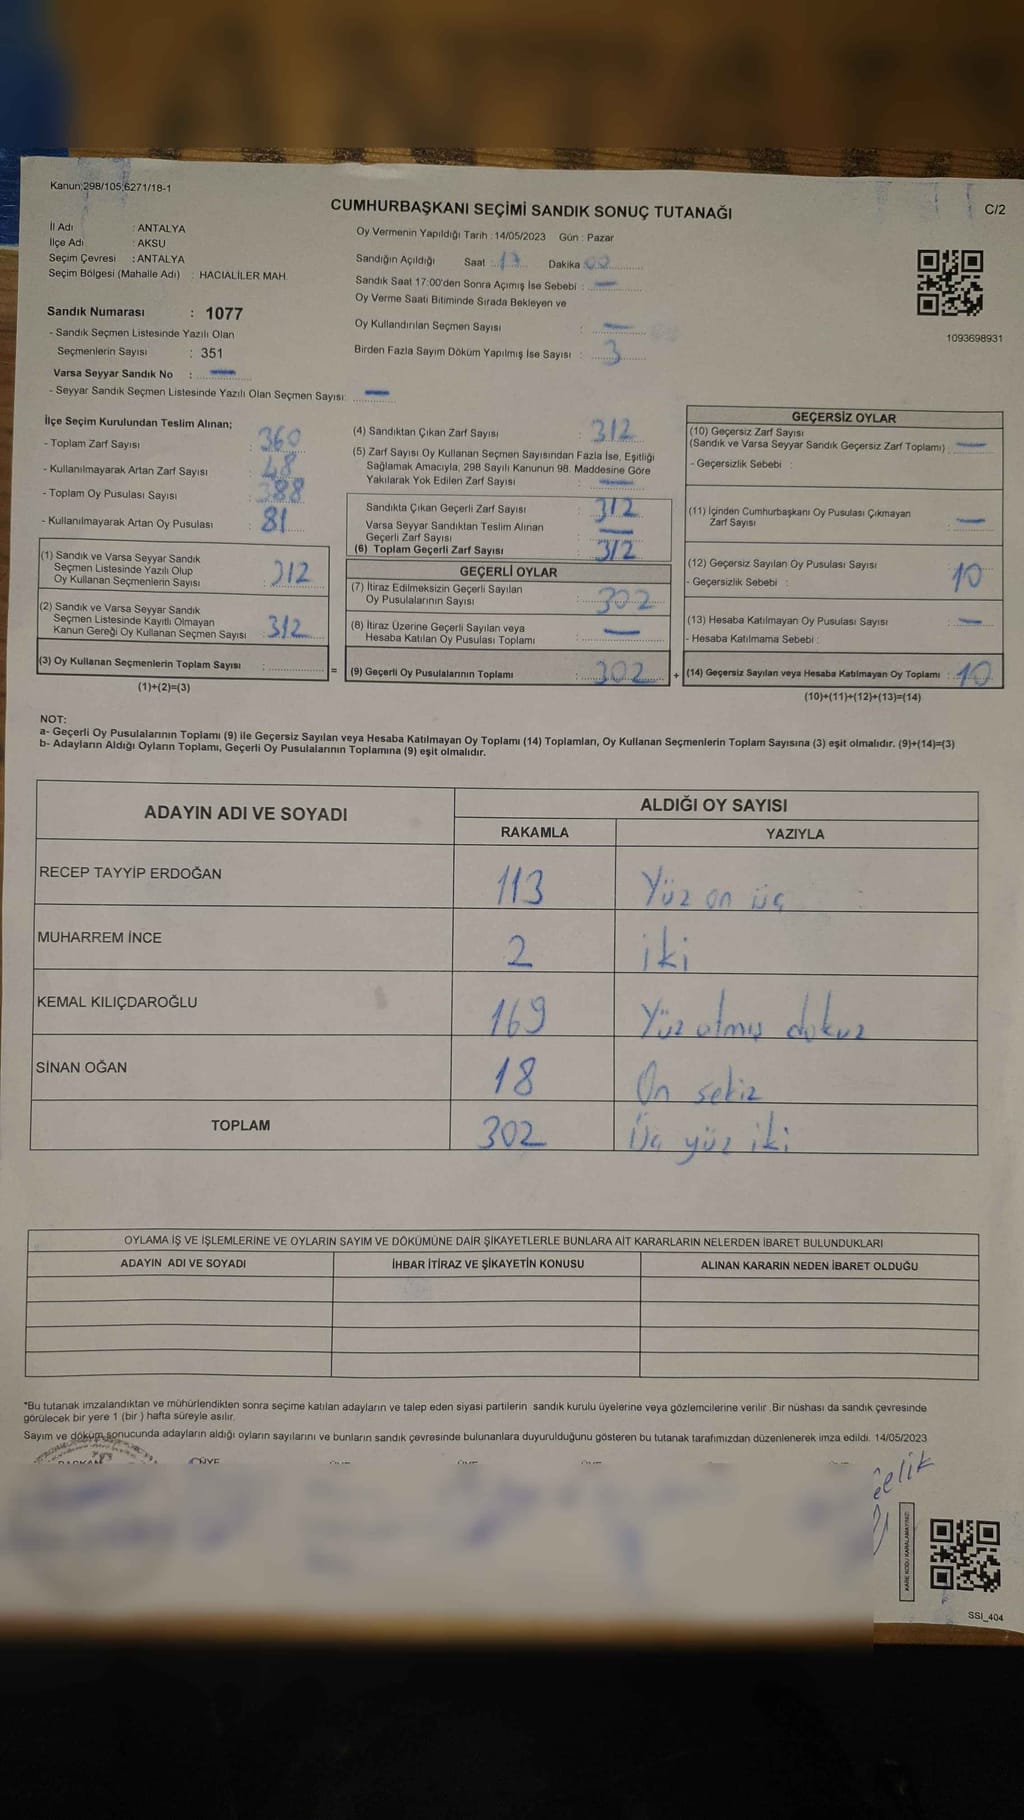 Kanun;298/105;6271/18-1
CUMHURBAŞKANI SEÇİMİ SANDIK SONUÇ TUTANAĞI
C/2
İl Adı : ANTALYA
İlçe Adı : AKSU
Seçim Çevresi : ANTALYA
Seçim Bölgesi (Mahalle Adı) : HACIALİLER MAH.
Oy Vermenin Yapıldığı Tarih : 14/05/2023 Gün : Pazar
Sandığın Açıldığı Saat : 17 Dakika 00
Sandık Saat 17:00'den Sonra Açımış İse Sebebi : —
Oy Verme Saati Bitiminde Sırada Bekleyen ve
Oy Kullandırılan Seçmen Sayısı : —
Birden Fazla Sayım Döküm Yapılmış İse Sayısı : 3
1093698931
Sandık Numarası : 1077
- Sandık Seçmen Listesinde Yazılı Olan
Seçmenlerin Sayısı : 351
Varsa Seyyar Sandık No : —
- Seyyar Sandık Seçmen Listesinde Yazılı Olan Seçmen Sayısı: —
İlçe Seçim Kurulundan Teslim Alınan;
- Toplam Zarf Sayısı : 360
- Kullanılmayarak Artan Zarf Sayısı : 48
- Toplam Oy Pusulası Sayısı : 388
- Kullanılmayarak Artan Oy Pusulası : 81
(1) Sandık ve Varsa Seyyar Sandık
Seçmen Listesinde Yazılı Olup
Oy Kullanan Seçmenlerin Sayısı : 312
(2) Sandık ve Varsa Seyyar Sandık
Seçmen Listesinde Kayıtlı Olmayan
Kanun Gereği Oy Kullanan Seçmen Sayısı : 312
(3) Oy Kullanan Seçmenlerin Toplam Sayısı :
(1)+(2)=(3)
(4) Sandıktan Çıkan Zarf Sayısı : 312
(5) Zarf Sayısı Oy Kullanan Seçmen Sayısından Fazla İse, Eşitliği
Sağlamak Amacıyla, 298 Sayılı Kanunun 98. Maddesine Göre
Yakılarak Yok Edilen Zarf Sayısı : —
Sandıkta Çıkan Geçerli Zarf Sayısı : 312
Varsa Seyyar Sandıktan Teslim Alınan
Geçerli Zarf Sayısı : —
(6) Toplam Geçerli Zarf Sayısı : 312
GEÇERLİ OYLAR
(7) İtiraz Edilmeksizin Geçerli Sayılan
Oy Pusulalarının Sayısı : 302
(8) İtiraz Üzerine Geçerli Sayılan veya
Hesaba Katılan Oy Pusulası Toplamı : —
= (9) Geçerli Oy Pusulalarının Toplamı : 302
GEÇERSİZ OYLAR
(10) Geçersiz Zarf Sayısı
(Sandık ve Varsa Seyyar Sandık Geçersiz Zarf Toplamı) : —
- Geçersizlik Sebebi :
(11) İçinden Cumhurbaşkanı Oy Pusulası Çıkmayan
Zarf Sayısı : —
(12) Geçersiz Sayılan Oy Pusulası Sayısı : 10
- Geçersizlik Sebebi :
(13) Hesaba Katılmayan Oy Pusulası Sayısı : —
- Hesaba Katılmama Sebebi :
+ (14) Geçersiz Sayılan veya Hesaba Katılmayan Oy Toplamı : 10
(10)+(11)+(12)+(13)=(14)
NOT:
a- Geçerli Oy Pusulalarının Toplamı (9) ile Geçersiz Sayılan veya Hesaba Katılmayan Oy Toplamı (14) Toplamları, Oy Kullanan Seçmenlerin Toplam Sayısına (3) eşit olmalıdır. (9)+(14)=(3)
b- Adayların Aldığı Oyların Toplamı, Geçerli Oy Pusulalarının Toplamına (9) eşit olmalıdır.
ADAYIN ADI VE SOYADI
ALDIĞI OY SAYISI
RAKAMLA YAZIYLA
RECEP TAYYİP ERDOĞAN 113 Yüz on üç
MUHARREM İNCE 2 iki
KEMAL KILIÇDAROĞLU 169 Yüz atmış dokuz
SİNAN OĞAN 18 On sekiz
TOPLAM 302 Üç yüz iki
OYLAMA İŞ VE İŞLEMLERİNE VE OYLARIN SAYIM VE DÖKÜMÜNE DAİR ŞİKAYETLERLE BUNLARA AİT KARARLARIN NELERDEN İBARET BULUNDUKLARI
ADAYIN ADI VE SOYADI İHBAR İTİRAZ VE ŞİKAYETİN KONUSU ALINAN KARARIN NEDEN İBARET OLDUĞU
*Bu tutanak imzalandıktan ve mühürlendikten sonra seçime katılan adayların ve talep eden siyasi partilerin sandık kurulu üyelerine veya gözlemcilerine verilir .Bir nüshası da sandık çevresinde
görülecek bir yere 1 (bir ) hafta süreyle asılır.
Sayım ve döküm sonucunda adayların aldığı oyların sayılarını ve bunların sandık çevresinde bulunanlara duyurulduğunu gösteren bu tutanak tarafımızdan düzenlenerek imza edildi. 14/05/2023
BAŞKAN ÜYE
Çelik
SSİ_404